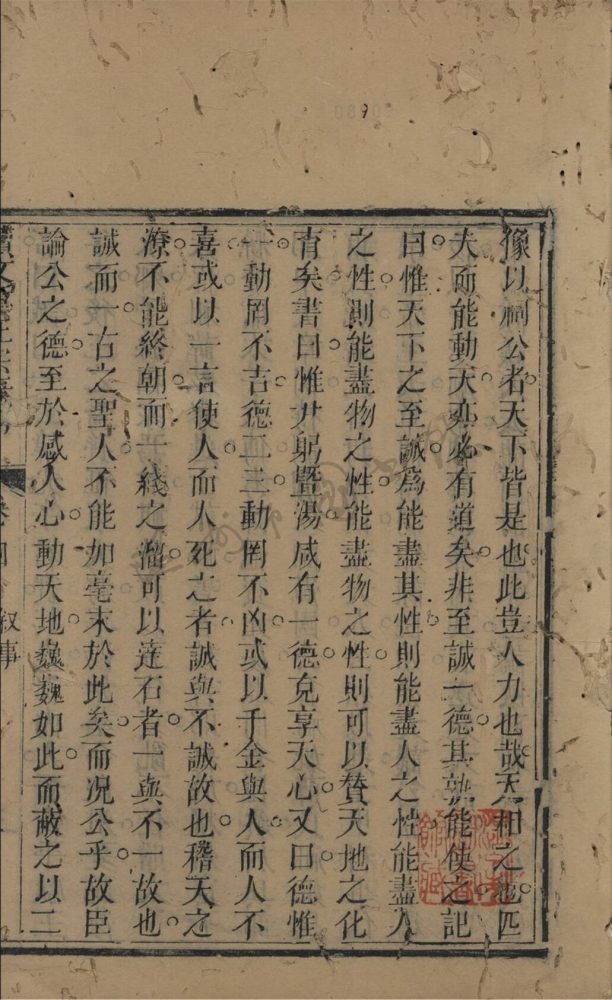 像以祠公者天下皆是也此豈人力也哉天相之也匹
夫而能動天亦必有道矣非至誠一德其孰能使之記
曰惟天下之至誠爲能盡其性則能盡人之性能盡人
之性則能盡物之性能盡物之性則可以贊天地之化
育矣書曰惟尹躬曁湯咸有一德克享天心又曰德惟
一動罔不吉德二三動罔不凶或以千金與人而人不
喜或以一言使人而人死之者誠與不誠故也稽天之
潦不能終朝而一綫之溜可以達石者一與不一故也
誠而一古之聖人不能加毫末於此矣而况公乎故臣
論公之德至於感人心動天地巍巍如此而蔽之以二
卷四 叙事